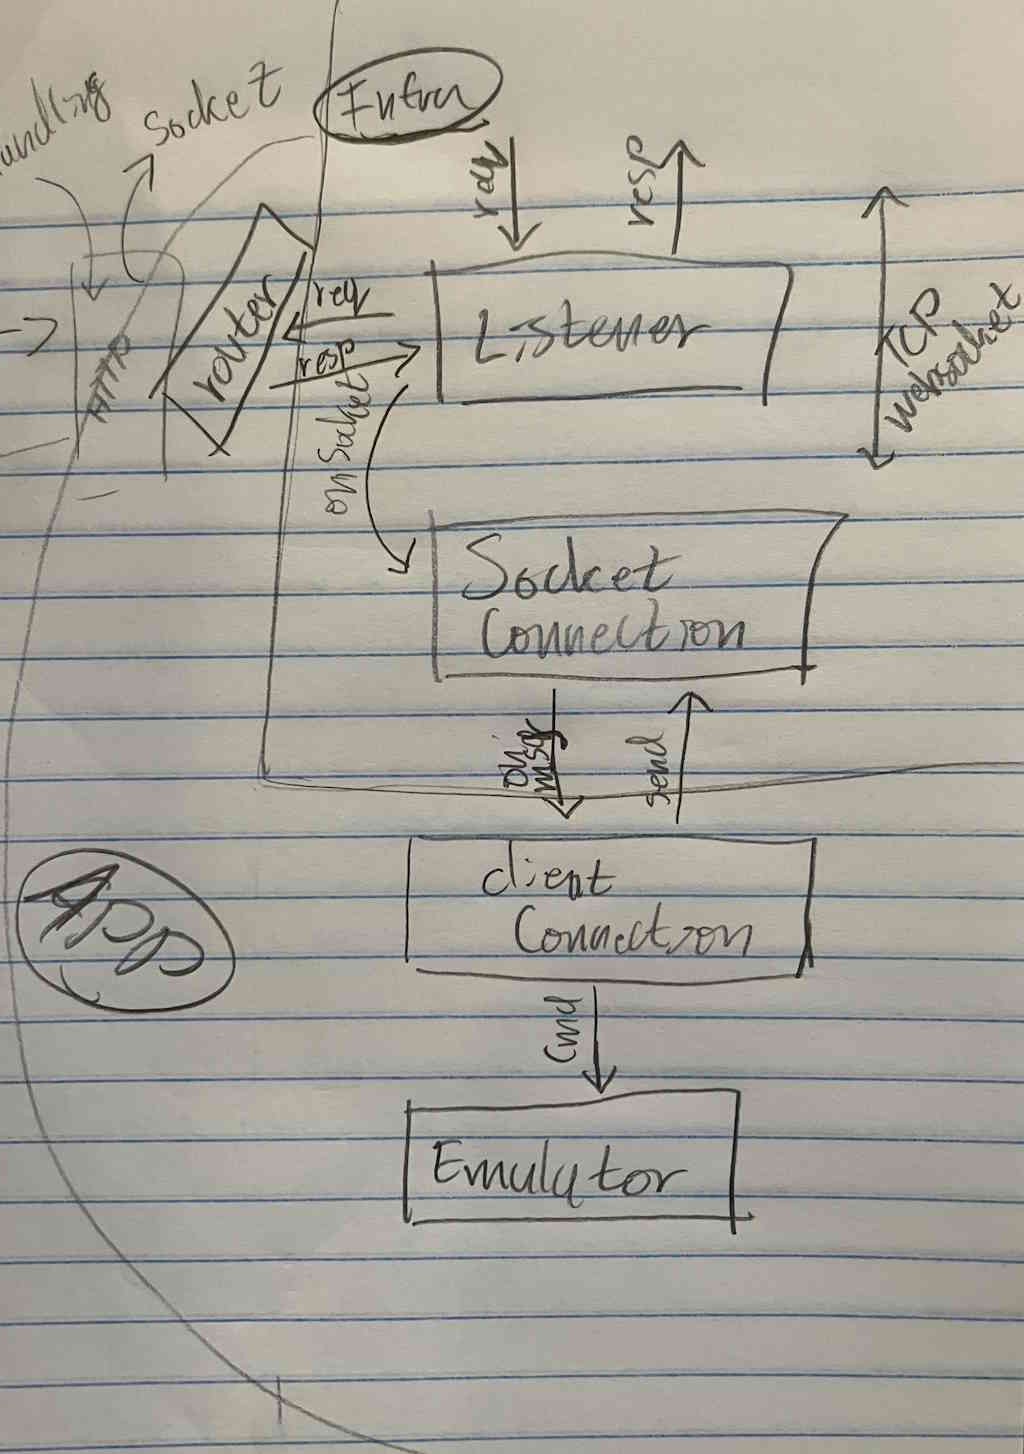 Socket
Infra
req
resp
HTTP
router
req
resp
Listener
TCP
websocket
on socket
Socket
Connection
on
msg
send
App
client
Connection
cmd
Emulator